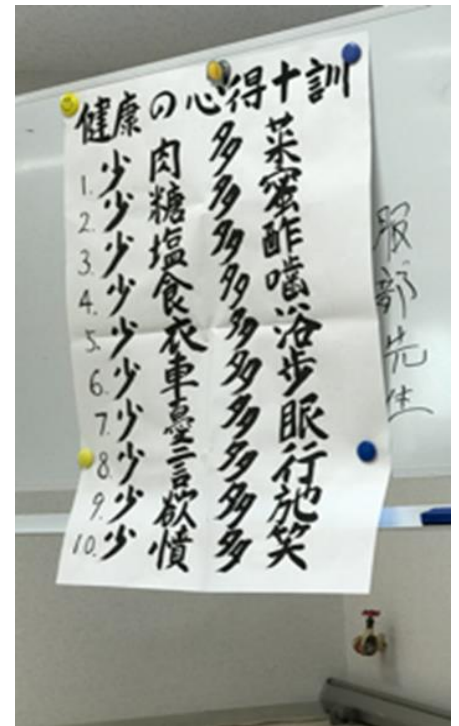 健康の心得十訓
1. 少肉多菜
2. 少糖多蜜
3. 少塩多酢
4. 少食多噛
5. 少衣多浴
6. 少車多歩
7. 少憂多眠
8. 少言多行
9. 少欲多施
10. 少憤多笑
服部先生